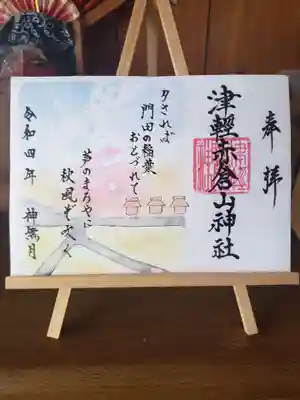 奉拝
津軽赤倉山神社
夕されば
門田の稲葉
おとづれて
芦のまろやに
秋風ぞ吹く
令和四年 神無月